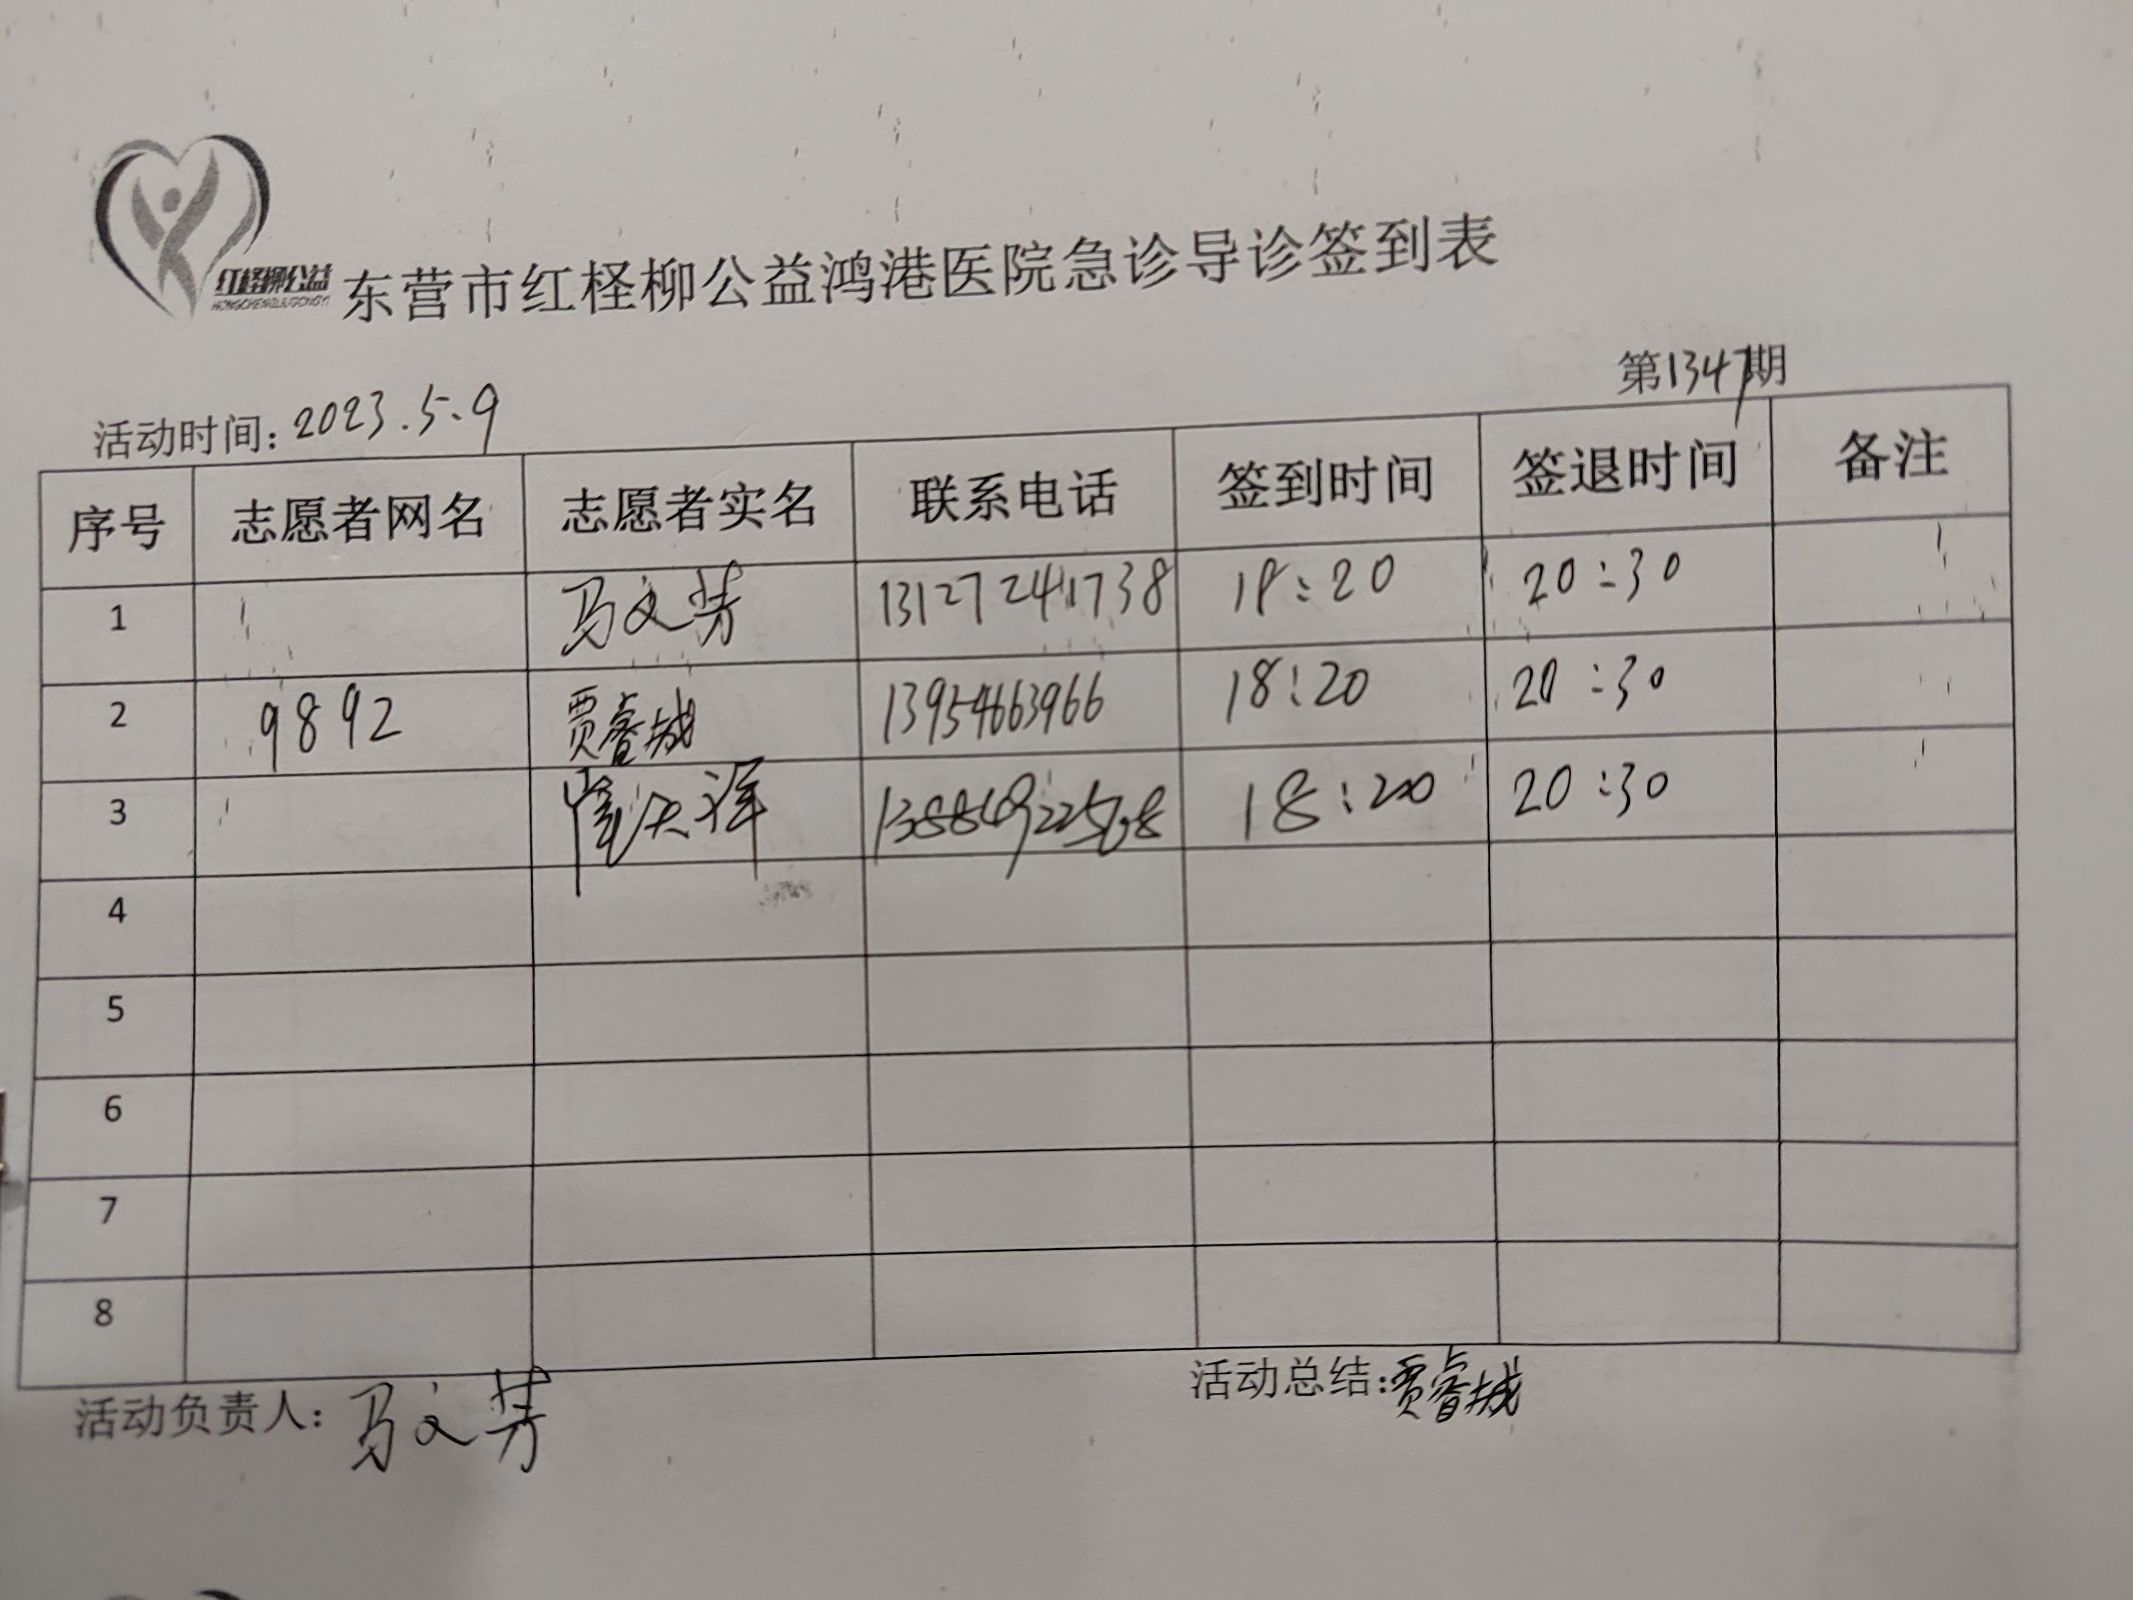 红柽柳公益
HONGCHENGLIUGONGYI
东营市红柽柳公益鸿港医院急诊导诊签到表
第1347期
活动时间：2023.5.9
序号 志愿者网名 志愿者实名 联系电话 签到时间 签退时间 备注
1 马文芳 13127241738 18:20 20:30
2 9892 贾睿城 13954663966 18:20 20:30
3 18:20 20:30
4
5
6
7
8
活动负责人：马文芳 活动总结：贾睿城